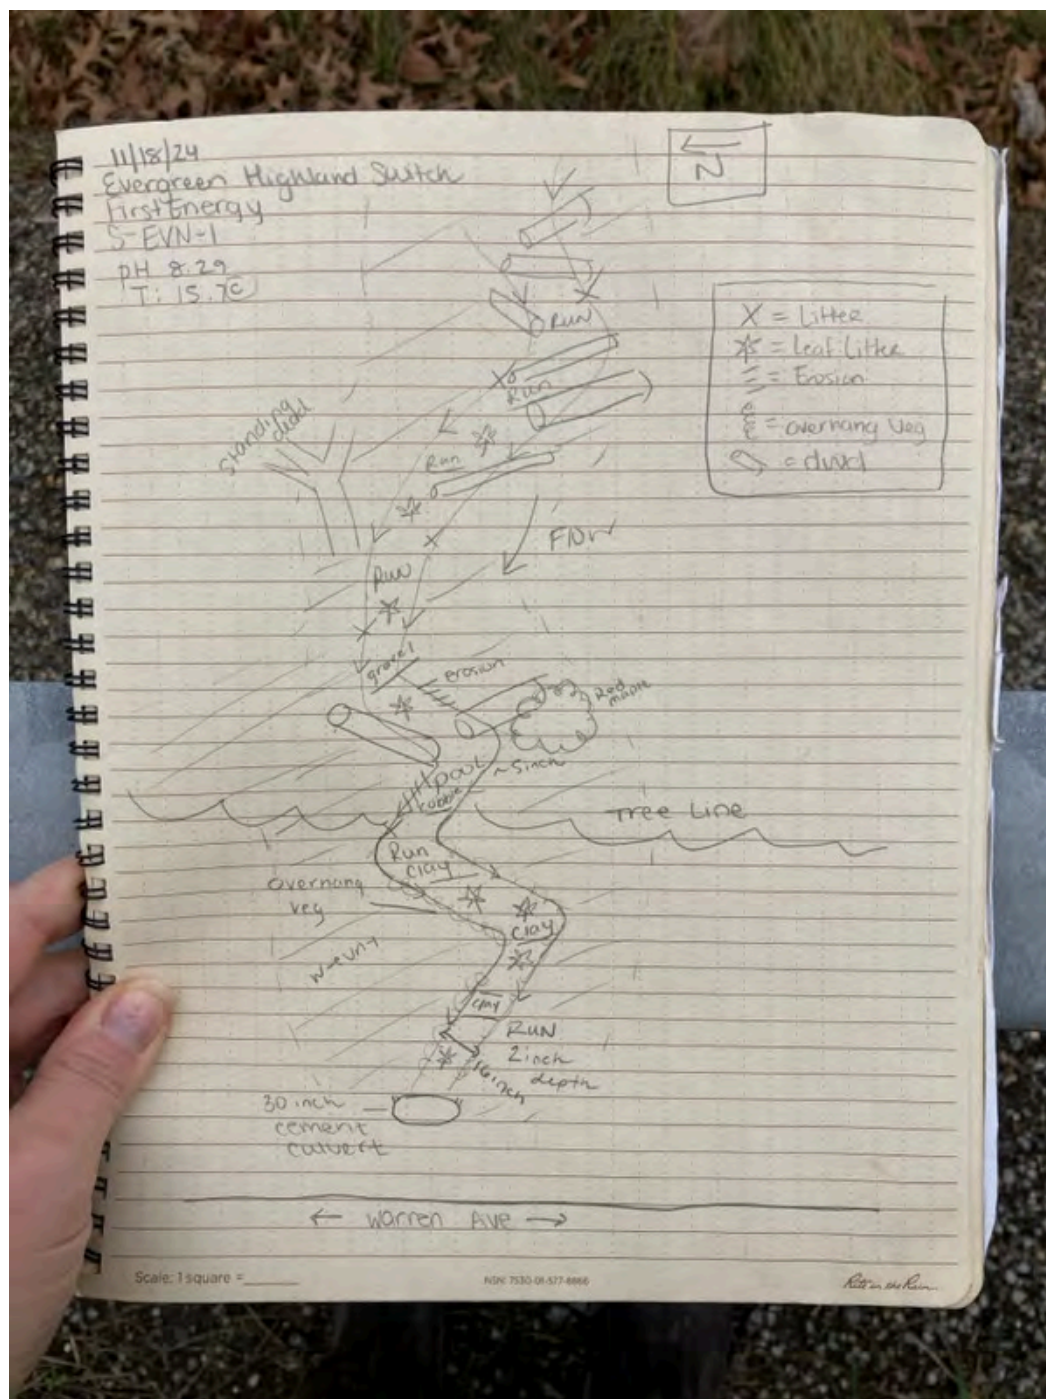 11/18/24
Evergreen Highland Switch
First Energy
S-EVN-1
pH 8.29
T: 15.7C
N
X = Litter
= Leaf Litter
= Erosion
= overhang veg
= dwd
Run
Run
Standing
dead
Run
Flow
Run
gravel
erosion
Red
maple
pool
~5inch
cobble
Tree Line
Run
clay
overhang
veg
clay
W-EVN-1
clay
RUN
2inch
depth
16inch
30 inch
cement
culvert
← Warren Ave →
Scale: 1 square =
NSN: 7530-01-577-8866
Rite in the Rain